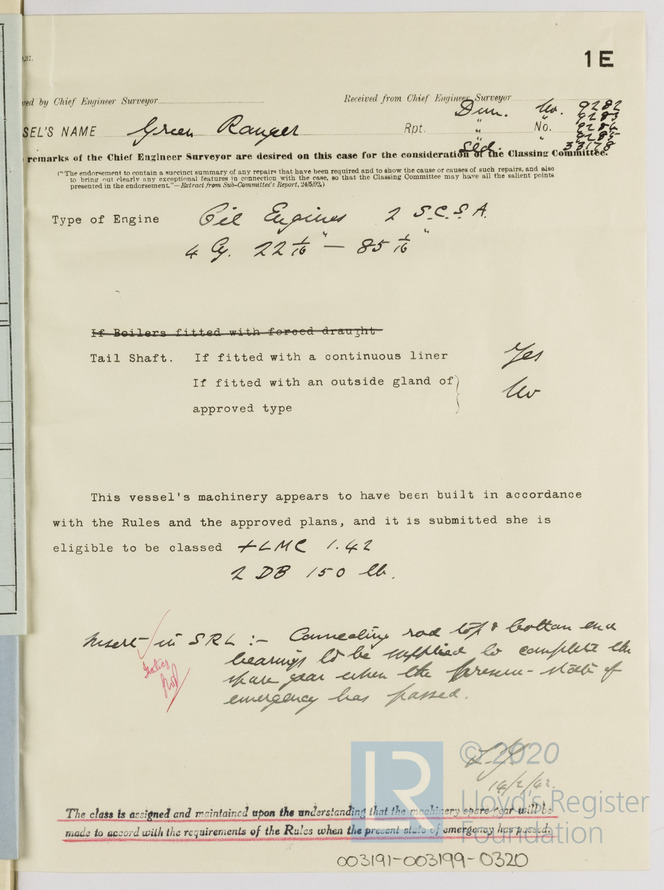 1E
ed by Chief Engineer Surveyor
Received from Chief Engineer Surveyor
Dun. No. 9282
" 9283
SEL'S NAME Green Ranger Rpt. " No. 9284
" " 9285
Sld. 33178
remarks of the Chief Engineer Surveyor are desired on this case for the consideration of the Classing Committee.
("The endorsement to contain a succinct summary of any repairs that have been required and to show the cause or causes of such repairs, and also
to bring out clearly any exceptional features in connection with the case, so that the Classing Committee may have all the salient points
presented in the endorsement."—Extract from Sub-Committee's Report, )
Type of Engine Oil Engines 2 S.C.S.A.
4 Cy. 22 1/16" — 85 1/16"
If Boilers fitted with forced draught
Tail Shaft. If fitted with a continuous liner Yes
If fitted with an outside gland of} No
approved type
This vessel's machinery appears to have been built in accordance
with the Rules and the approved plans, and it is submitted she is
eligible to be classed +LMC 1.42
2 DB 150 lb.
Insert in SRL :- Connecting rod top & bottom end
bearings to be supplied to complete the
spare gear when the present state of
emergency has passed.
14/2/42
The class is assigned and maintained upon the understanding that the machinery spare gear will be
made to accord with the requirements of the Rules when the present state of emergency has passed.
LR
© 2020
Lloyd's Register
Foundation
003191-003199-0320